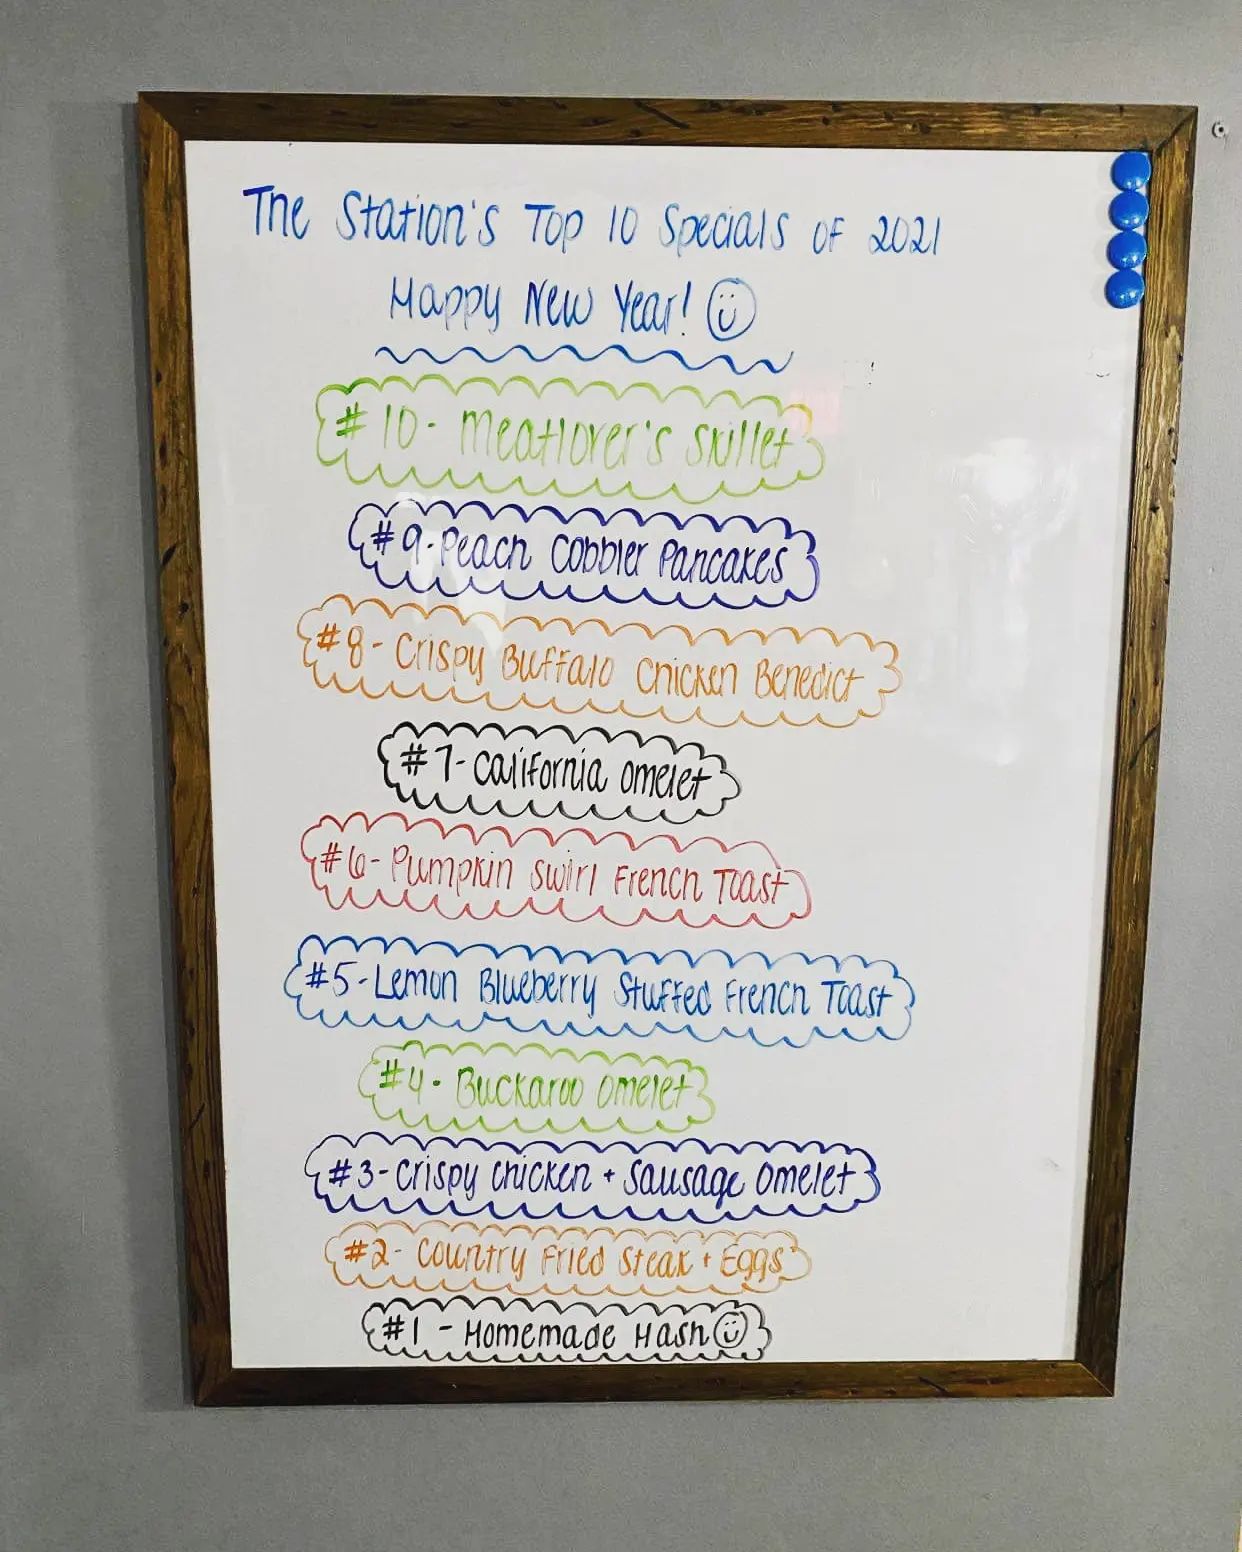 The Station's Top 10 Specials of 2021
Happy New Year!
#10- Meatlover's Skillet
#9-Peach Cobbler Pancakes
#8- Crispy Buffalo Chicken Benedict
#7-California Omelet
#6-Pumpkin Swirl French Toast
#5-Lemon Blueberry Stuffed French Toast
#4- Buckaroo Omelet
#3-Crispy Chicken + Sausage Omelet
#2- Country Fried Steak + Eggs
#1 - Homemade Hash